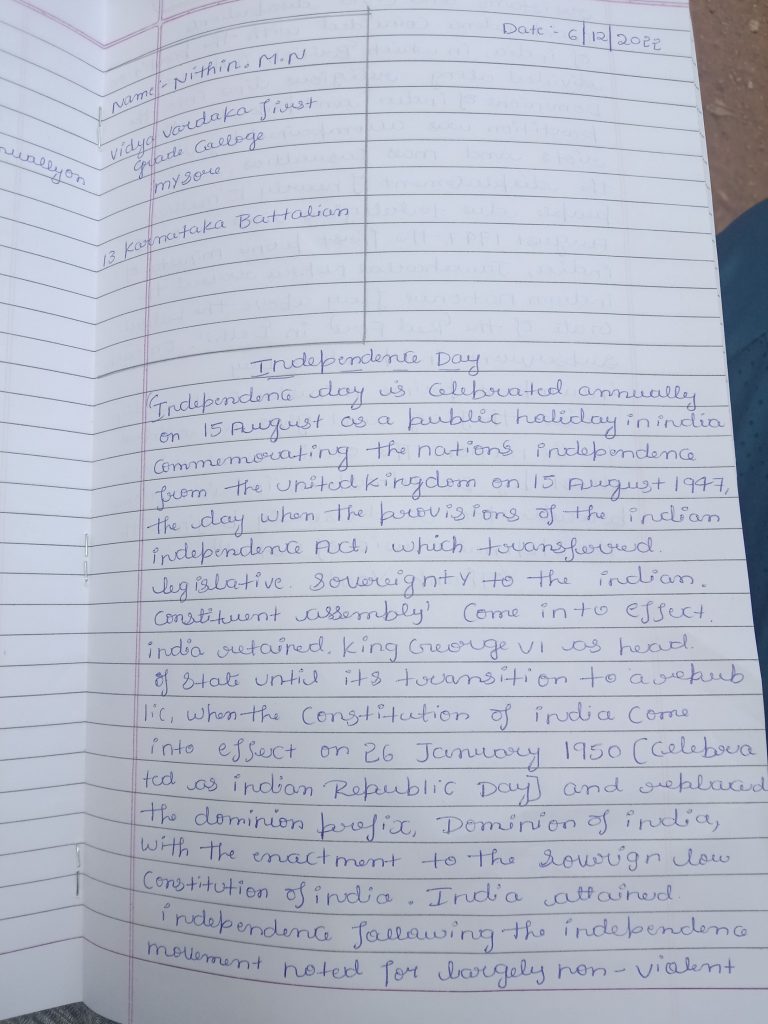 Date:- 6/12/2022
Name:- Nithin. M.N
vidya vardaka first
grade Calloge
mysore
13 Karnataka Battalian
uallyon
Independence Day
Independence day is celebrated annually
on 15 August as a public haliday in india
commemorating the nation's independence
from the united kingdom on 15 August 1947,
the day when the provisions of the indian
independence Act, which transferred.
legislative. Sovereignty to the indian.
Constituent assembly' come into effect.
india retained. king George VI as head.
of state until its transition to a repub
lic, when the Constitution of india Come
into effect on 26 January 1950 (Celebra
ted as indian Republic Day) and replaced
the dominion prefix, Dominion of india,
with the enactment to the sovrign low
Constitution of india. India attained
independence fallawing the independence
movement noted for largely non-violent